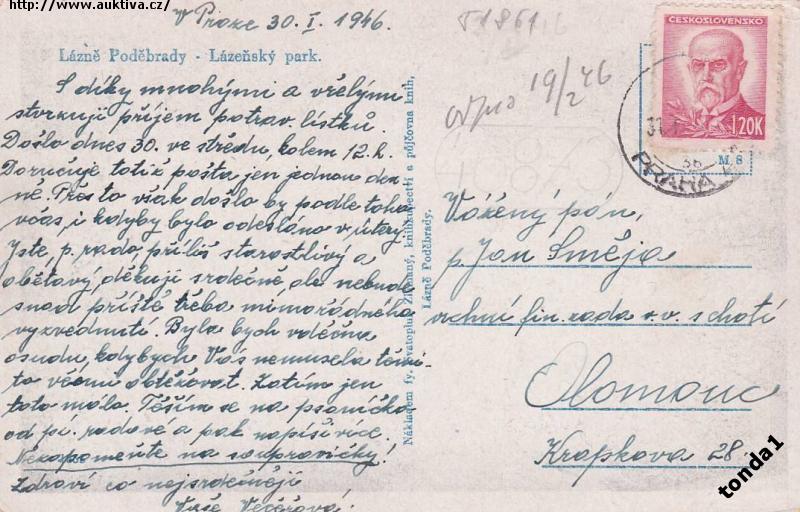 http://www.auktiva.cz/
V Praze 30. I. 1946.
Lázně Poděbrady - Lázeňský park.
S díky mnohými a vřelými
stvrzuji příjem potrav. lístků.
Došlo dnes 30. ve středu, kolem 12. h.
Doručuje totiž pošta jen jednou den
ně. Přesto však došlo by podle toho
včas, i kdyby bylo odesláno v úterý.
Jste, p. rado, příliš starostlivý a
obětavý, děkuji srdečně, ale nebude
snad příště třeba mimořádného
vyzvednutí. Byla bych vděčna
osudu, kdybych Vás nemusela těmi-
to věcmi obtěžovat. Zatím jen
toto málo. Těším se na psaníčko
od pí. radové a pak napíši více.
Nezapomeňte na soupravičky!
Zdraví co nejsrdečněji
Vaše Večeřová.
Nákladem fy. Svatopluk Zikmund, knihkupectví a půjčovna knih,
Lázně Poděbrady.
19/2 46
ČESKOSLOVENSKO
1.20K
31.
PRAHA
M. 8
Vážený pán,
p. Jan Směja
vrchní fin. rada v. v. s chotí
Olomouc
Krapkova 28.
tonda1